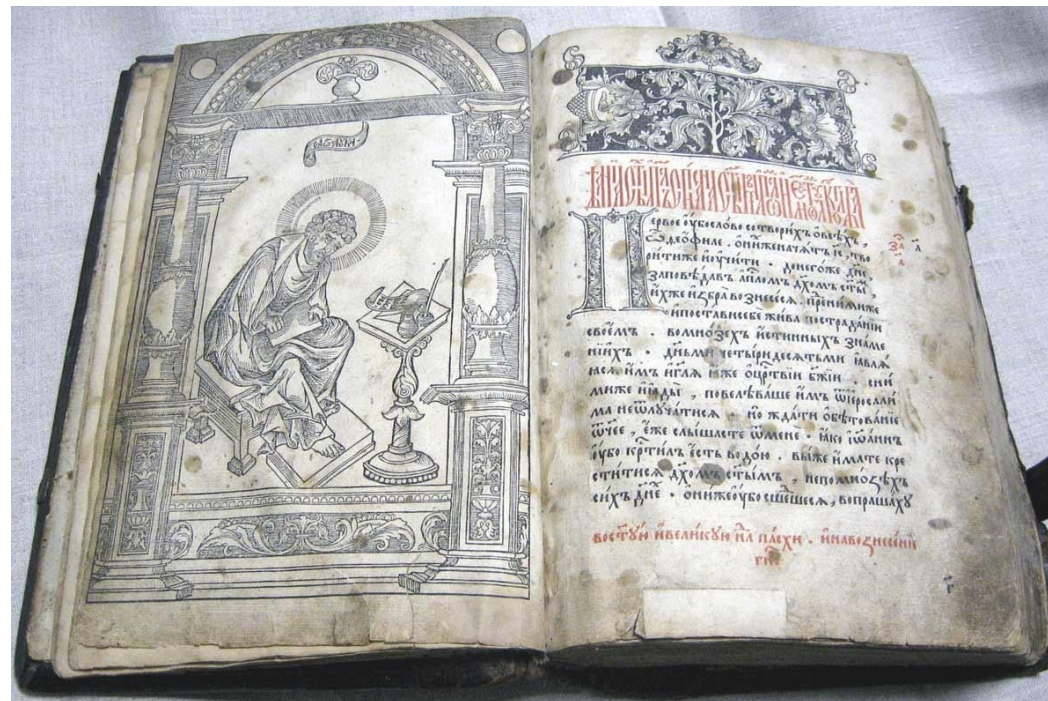 Первое ᲂу҆бо сло́во сотвори́хъ ѡ҆ всѣ́хъ,
ѽ ѳео́филе. ѡ҆ ни́хже нача́тъ і҆с, тво
ри́тиже и҆ ᲂу҆чи́ти. до него́же дн҃е
запове́давъ а҆пⷭ҇ломъ дх҃омъ ст҃ы
и҆́хже и҆збра̀ вознесе́сѧ. пре́д ни́миже
и҆ поста́ви себѐ жи́ва по страда́нїи
свое́мъ. во мно́зехъ и҆́стинныхъ зна́ме
нїихъ. дн҃ьми четы́ридесѧтьми ꙗ҆влѧ́
ꙗсѧ и҆̀мъ и҆ гл҃ѧ ꙗ҆́же ѡ҆ црⷭ҇твїи бж҃їи. с ни́
миже и҆ ꙗ҆ды̀, повелѣва́ше и҆̀мъ ѿ і҆ероⷭ҇али
ма не ѿлуча́тисѧ. но жда́ти ѡ҆бѣтова́нїе
ѿчее, е҆́же слы́шасте ѿ менѐ. ꙗ҆́ко і҆ѡа́ннъ
ᲂу҆́бо крⷭ҇ти́лъ е҆́сть водо́ю. вы́же и҆́мате кре
сти́тисѧ дх҃омъ ст҃ы́мъ, не по мно́зѣхъ
си́хъ дн҃е. ѻ҆ни́же ᲂу҆̀бо сше́дшесѧ, вопраша́хꙋ
во ст҃ꙋ́ю и҆ вели́кꙋю нⷣлѧ па́схи. и҆ на вознесе́нїе
гнⷭ҇е